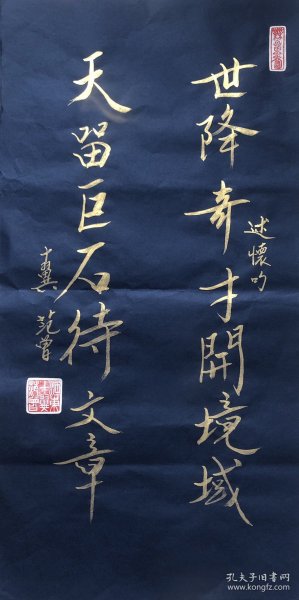 世降奇才開境域
述懷吟
天留巨石待文章
十翼范曾
孔夫子旧书网
www.kongfz.com